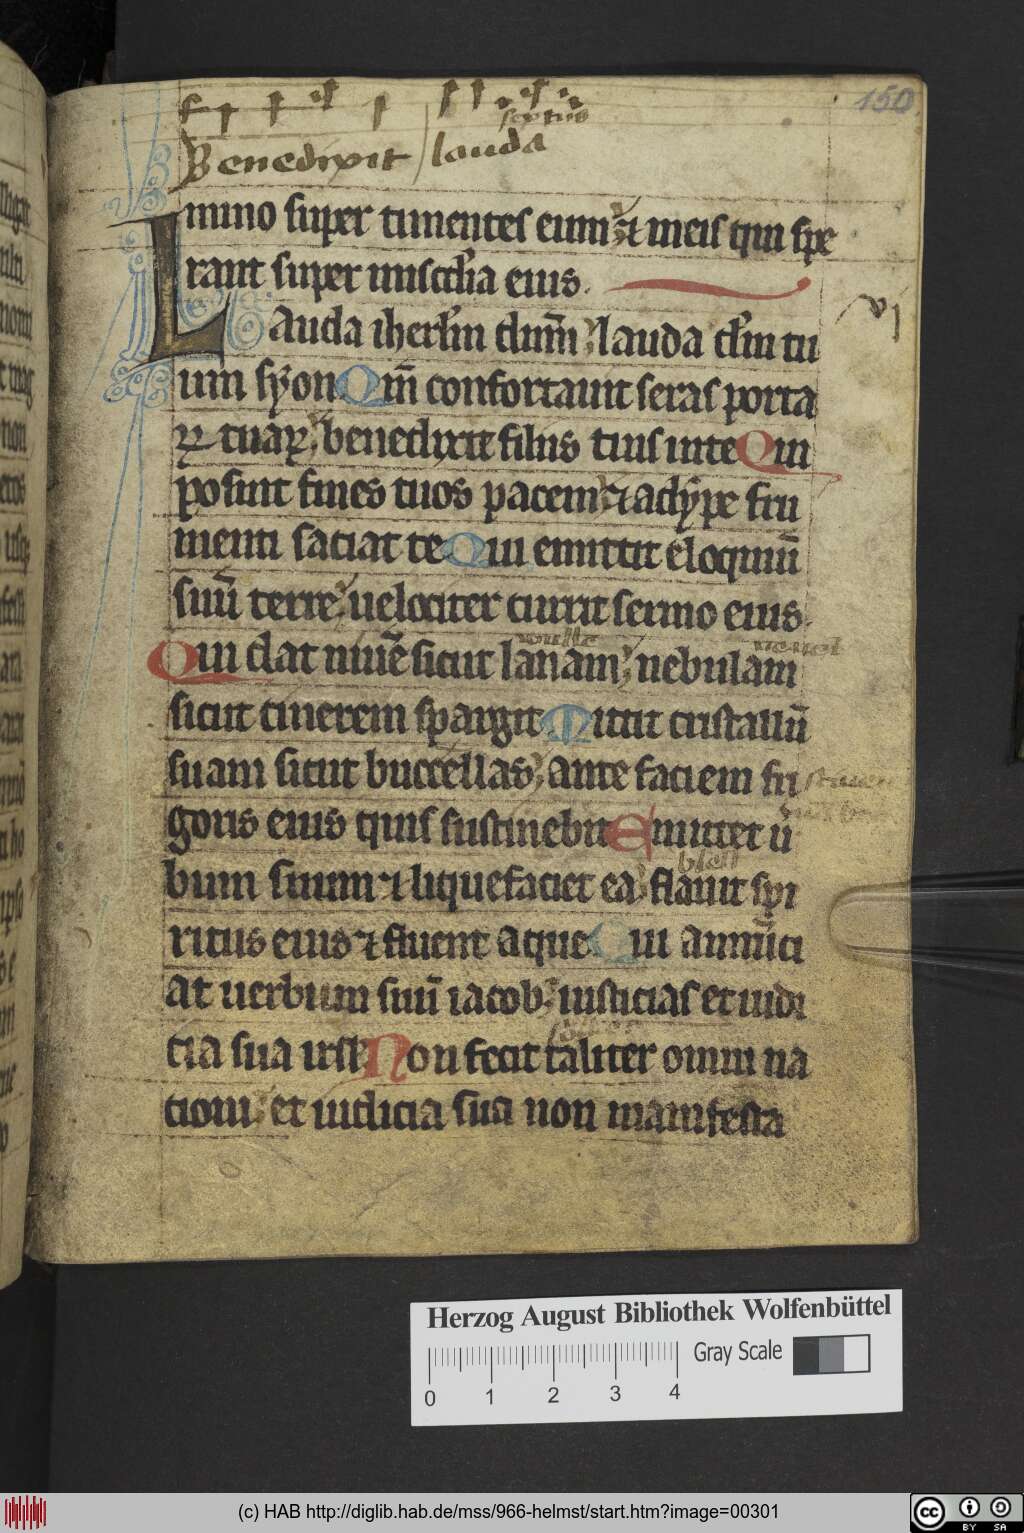 150
septus
Benedixit lauda
mino super timentes eum ⁊ in eis qui spe
rant super miscd'ia eius.
la
Lauda iherl'm dn̄m lauda d'm tu
um syon Qm̄ confortauit seras porta
ꝝ tuaꝝ benedixit filiis tuis in te Qui
posuit fines tuos pacem ⁊ adype fru
menti saciat te Qui emittit eloquiū
suū terre uelociter currit sermo eius.
wulle
Qui dat niuē sicut lanam nebulam
sicut cinerem spargit Mittit cristallū
suam sicut buccellas ante faciem fri
goris eius quis sustinebit Emittet u
bum suum ⁊ liquefaciet ea flauit spi
ritus eius ⁊ fluent aque Qui annūci
at uerbum suū iacob iusticias et iudi
cia sua isrl' Non fecit taliter omni na
cioni et iudicia sua non manifesta
Herzog August Bibliothek Wolfenbüttel
Gray Scale
0 1 2 3 4
(c) HAB http://diglib.hab.de/mss/966-helmst/start.htm?image=00301
cc BY SA